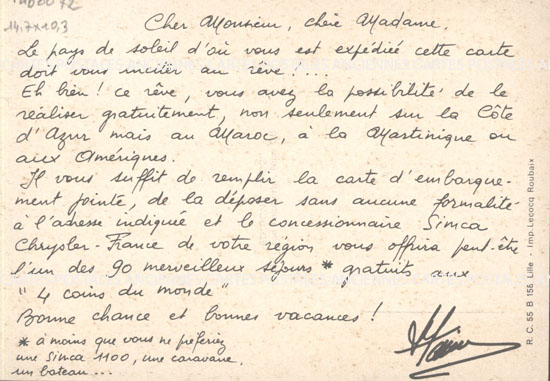 14,7x10,3
Cher Monsieur, chère Madame.
Le pays de soleil d'où vous est expédiée cette carte
doit vous inciter au rêve !...
Eh bien ! ce rêve, vous avez la possibilité de le
réaliser gratuitement, non seulement sur la Côte
d'Azur mais au Maroc, à la Martinique ou
aux Amériques.
Il vous suffit de remplir la carte d'embarque-
ment jointe, de la déposer sans aucune formalité
à l'adresse indiquée et le concessionnaire Simca
Chrysler-France de votre région vous offrira peut-être
l'un des 90 merveilleux séjours * gratuits aux
"4 coins du monde"
Bonne chance et bonnes vacances !
* à moins que vous ne préfériez
une Simca 1100, une caravane,
un bateau...
R. C. 55 B 156 Lille - Imp. Lecocq Roubaix